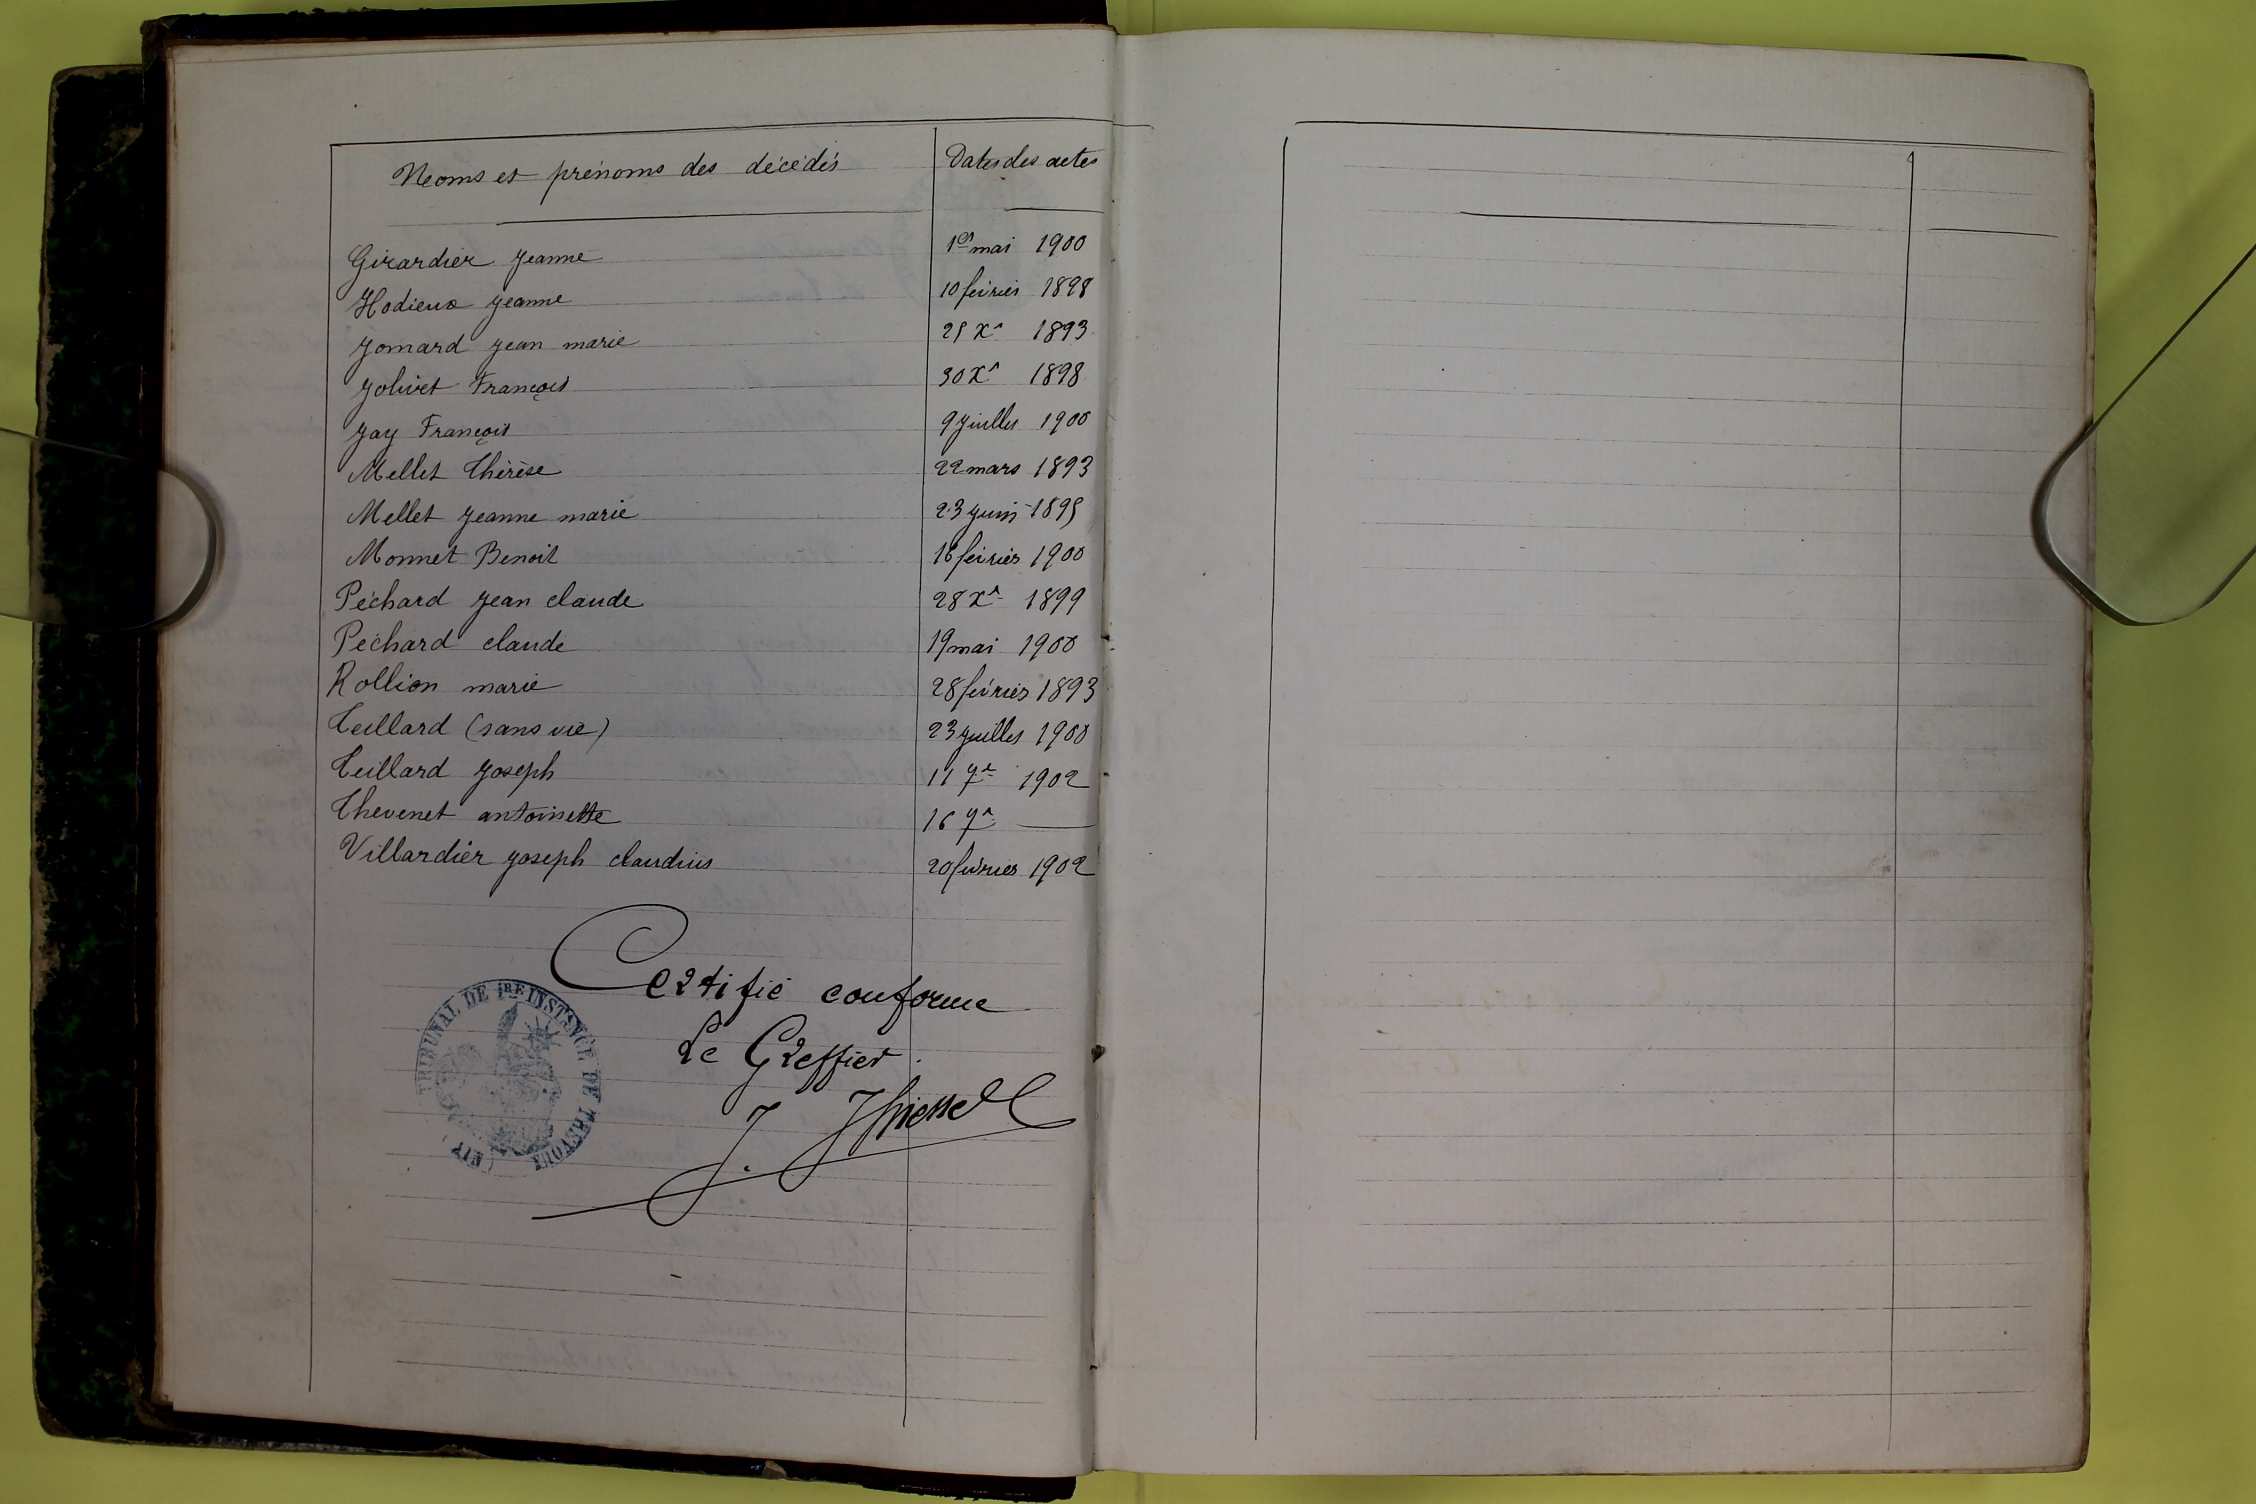 Neoms et prénoms des décédés Dates des actes
Girardier Jeanne 1er mai 1900
Hodieux Jeanne 10 février 1898
Jomard Jean marie 25 Xr 1893
Jolivet François 30 Xr 1898
Jay François 9 Juillet 1900
Mellet Thérèse 22 mars 1893
Mellet Jeanne marie 23 juin 1895
Monnet Benoit 16 février 1900
Péchard Jean claude 28 Xr 1899
Péchard claude 19 mai 1900
Rollion marie 28 février 1893
Teillard (sans vie) 23 juillet 1900
Teillard Joseph 11 7r 1902
Thevenet antoinette 16 7r —
Villardier Joseph claudius 20 février 1902
Certifié conforme
Le Greffier
J.
TRIBUNAL DE 1RE INSTANCE DE TREVOUX (AIN)